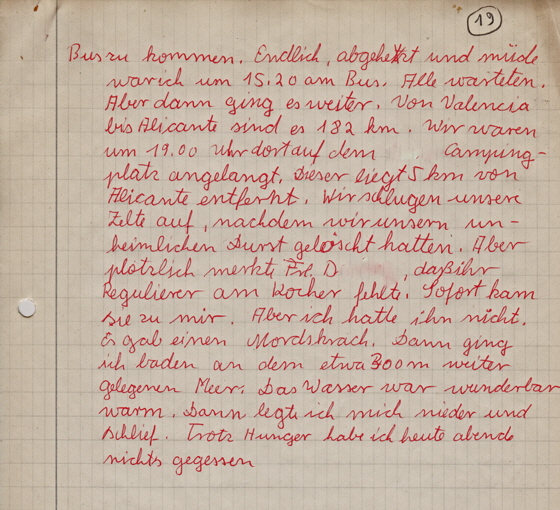 19
Bus zu kommen. Endlich, abgehetzt und müde
war ich um 15.20 am Bus. Alle warteten.
Aber dann ging es weiter. Von Valencia
bis Alicante sind es 182 km. Wir waren
um 19.00 Uhr dort auf dem Camping-
platz angelangt. Dieser liegt 5 km von
Alicante entfernt. Wir schlugen unsere
Zelte auf, nachdem wir unsern un-
heimlichen Durst gelöscht hatten. Aber
plötzlich merkte Frl. D , daß ihr
Regulierer am Kocher fehlte. Sofort kam
sie zu mir. Aber ich hatte ihn nicht.
Es gab einen Mordskrach. Dann ging
ich baden an dem etwa 300 m weiter
gelegenen Meer. Das Wasser war wunderbar
warm. Dann legte ich mich nieder und
schlief. Trotz Hunger habe ich heute abend
nichts gegessen